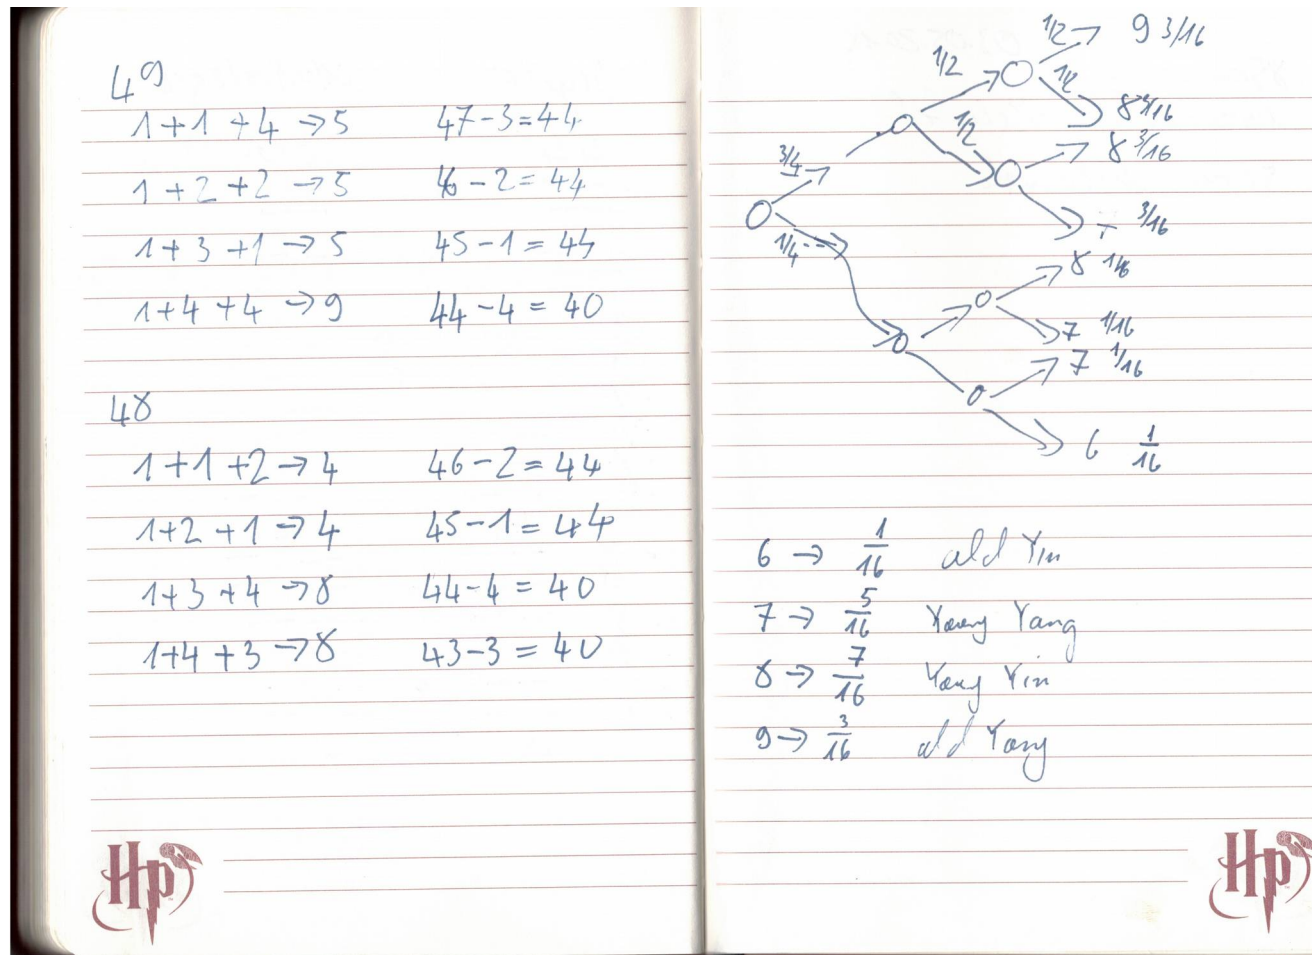 49
1+1+4→5 47-3=44
1+2+2→5 46-2=44
1+3+1→5 45-1=44
1+4+4→9 44-4=40
48
1+1+2→4 46-2=44
1+2+1→4 45-1=44
1+3+4→8 44-4=40
1+4+3→8 43-3=40
Hp
1/2 9 3/16
1/2 1/2
8 3/16
1/2 8 3/16
3/4
7 3/16
1/4
8 1/16
7 1/16
7 1/16
6 1/16
6→1/16 old Yin
7→5/16 Young Yang
8→7/16 Young Yin
9→3/16 old Yang
Hp